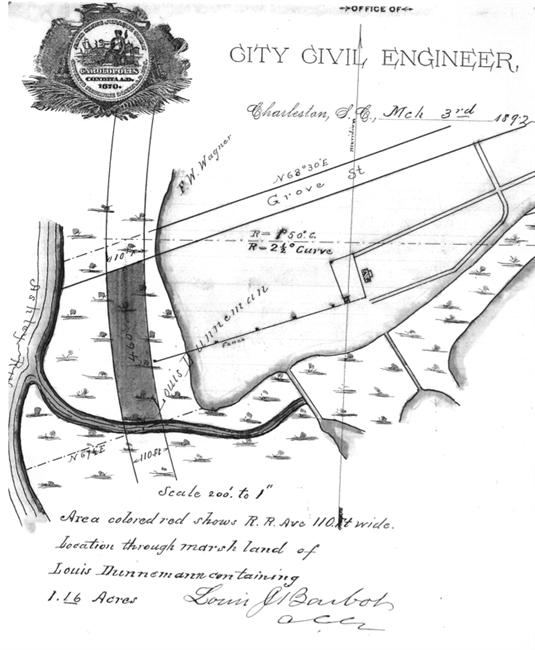 →OFFICE OF←
CITY CIVIL ENGINEER,
CAROLOPOLIS
CONDITA A.D.
1670.
Charleston, S.C., Mch 3rd 1892
meridian
F. W. Wagner
N 68° 30' E
Grove St
R = 1° 50' C.
R = 2½° Curve
110 ft
Ashley River
460
Louis Dunneman
Fence
N 67½ E
110 ft
Scale 200'. to 1"
Area colored red shows R. R. Ave 110. ft wide.
Location through marsh land of
Louis Dunnemann containing
1.16 Acres
Louis J Barbot